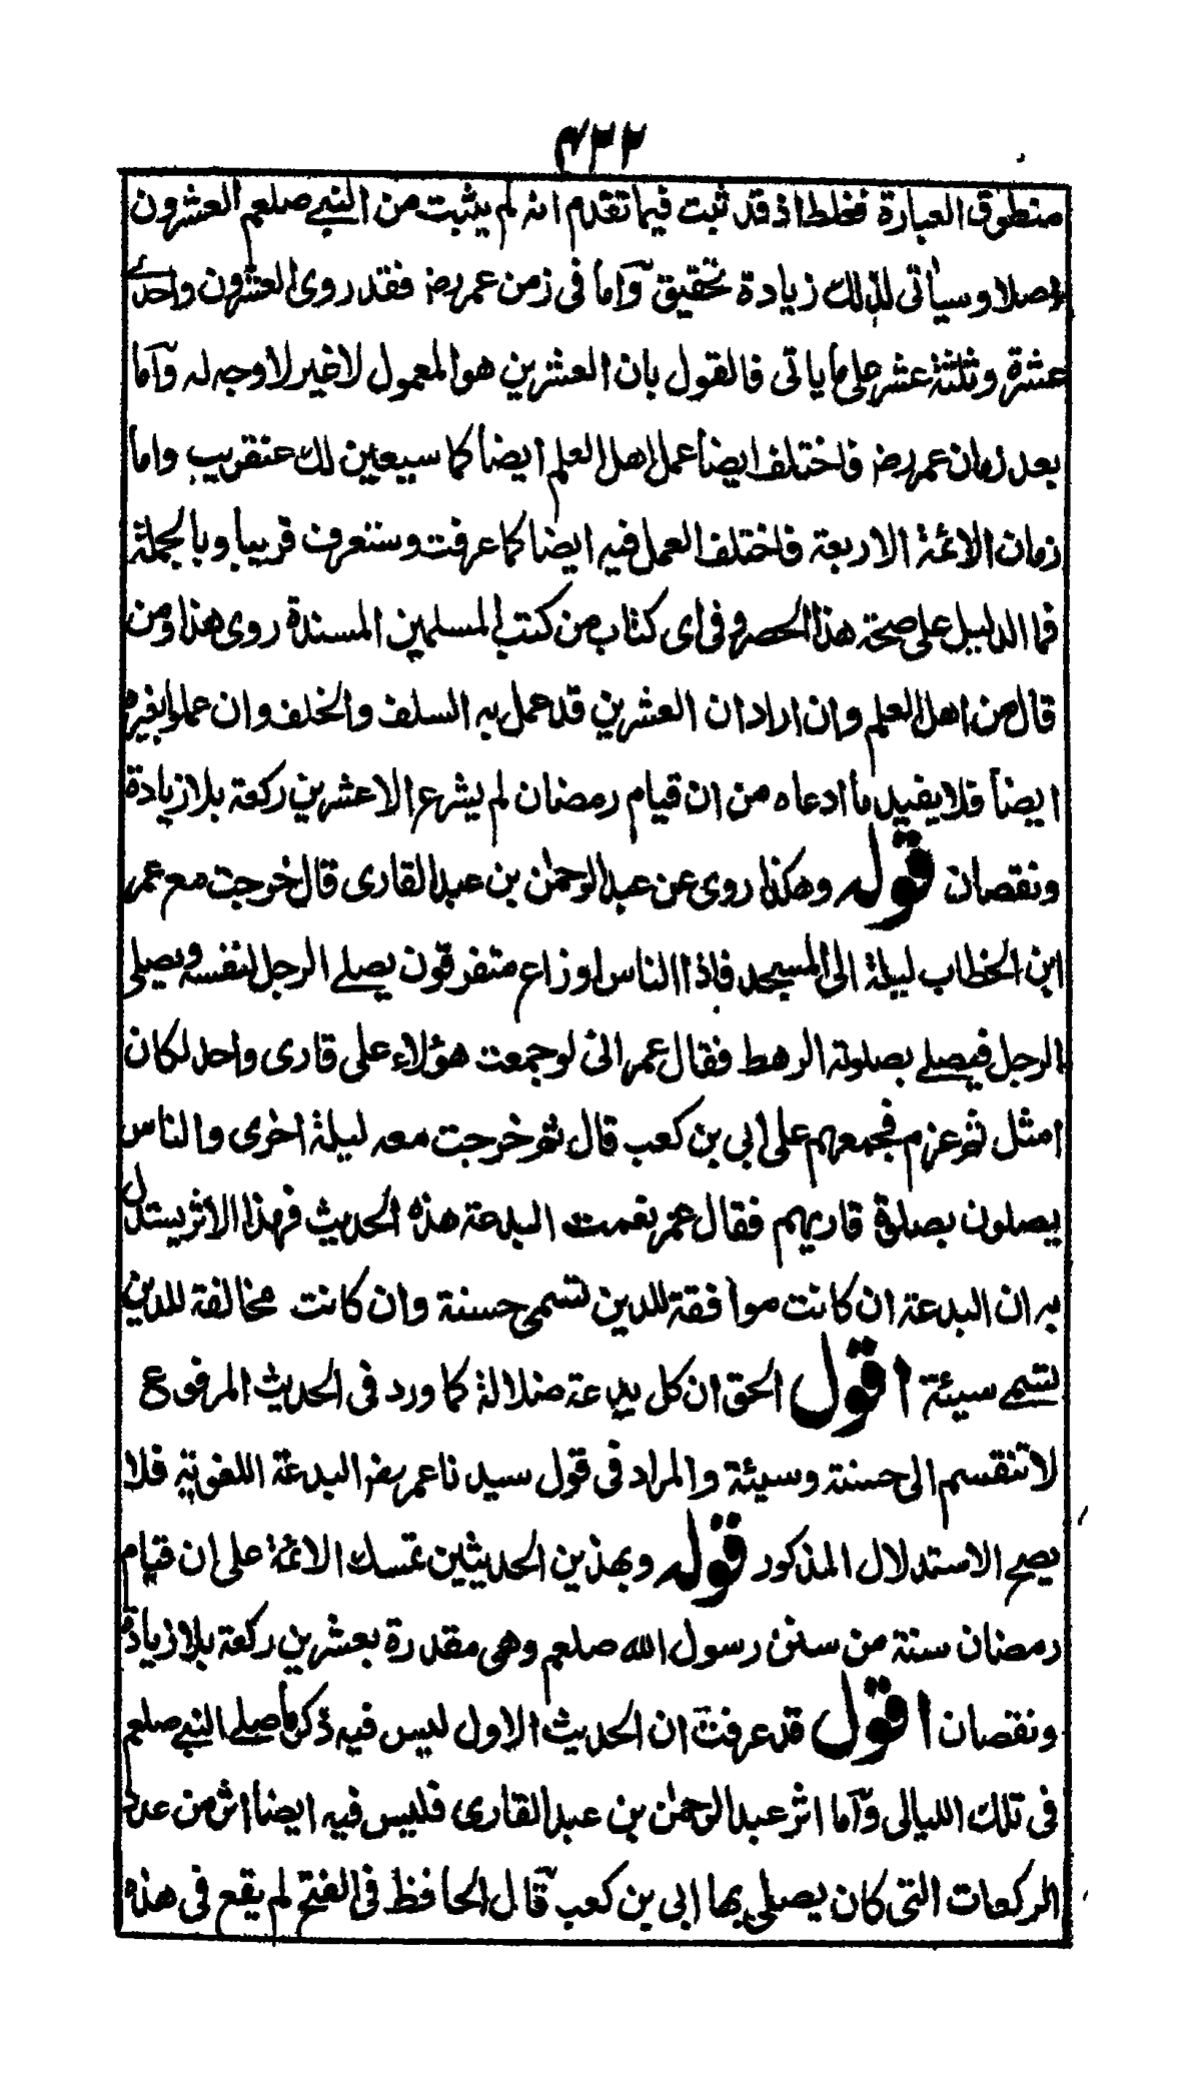 ٤٣٢
منطوق العبارة فغلط اذ قد ثبت فيما تقدم انه لم يثبت من النبي صلعم العشرون
اصلا وسيأتى لذلك زيادة تحقيق وآما فى زمن عمر رض فقد روى العشرون واحدى
عشرة وثلثة عشر على ما ياتى فالقول بان العشرين هو المعمول لا غير لا وجه له وآما
بعد زمان عمر رض فاختلف ايضا عمل اهل العلم ايضا كما سيعلين لك عنقريب واما
زمان الائمة الاربعة فاختلف العمل فيه ايضا كما عرفت وستعرف قريبا وبالجملة
فما الدليل على صحة هذا الحصر وفى اى كتاب من كتب المسلمين المسندة روى هذا ومن
قال من اهل العلم وان اراد ان العشرين قد عمل به السلف والخلف وان عملوا بغيره
ايضا فلا يفيد ما ادعاه من ان قيام رمضان لم يشرع الا عشرين ركعة بلا زيادة
ونقصان قوله وهكذا روى عن عبد الرحمن بن عبد القارى قال خرجت مع عمر
ابن الخطاب ليلة الى المسجد فاذا الناس اوزاع متفرقون يصلے الرجل لنفسه ويصلى
الرجل فيصلے بصلوته الرهط فقال عمر انى لو جمعت هؤلاء على قارى واحد لكان
امثل ثم عزم فجمعهم على ابى بن كعب قال ثم خرجت معه ليلة اخرى والناس
يصلون بصلوة قاريهم فقال عمر نعمت البدعة هذه الحديث فهذا الاثر يستدل
به ان البدعة ان كانت موافقة للدين تسمى حسنة وان كانت مخالفة للدين
تسمے سيئة اقول الحق ان كل بدعة ضلالة كما ورد فى الحديث المرفوع
لا تنقسم الى حسنة وسيئة والمراد فى قول سيدنا عمر رض البدعة اللغوية فلا
يصح الاستدلال المذكور قوله وبهذين الحديثين تمسك الائمة على ان قيام
رمضان سنة من سنن رسول الله صلعم وهى مقدرة بعشرين ركعة بلا زيادة
ونقصان اقول قد عرفت ان الحديث الاول ليس فيه ذكر ما صلے النبے صلعم
فى تلك الليالى وآما اثر عبد الرحمن بن عبد القارى فليس فيه ايضا اثر من عدد
الركعات التى كان يصلى بها ابى بن كعب قال الحافظ فى الفتح لم يقع فى هذه